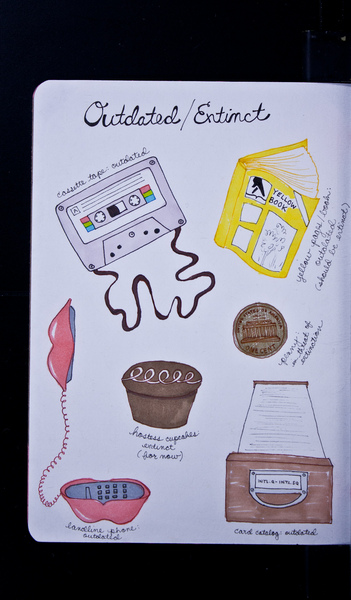 Outdated/Extinct
cassette tape: outdated
A
YELLOW
BOOK
yellow pages/book:
outdated
(should be extinct)
ONE CENT
penny:
in threat of
extinction
hostess cupcakes
extinct
(for now)
INTL-B - INTL-DS
landline phone:
outdated
card catalog: outdated